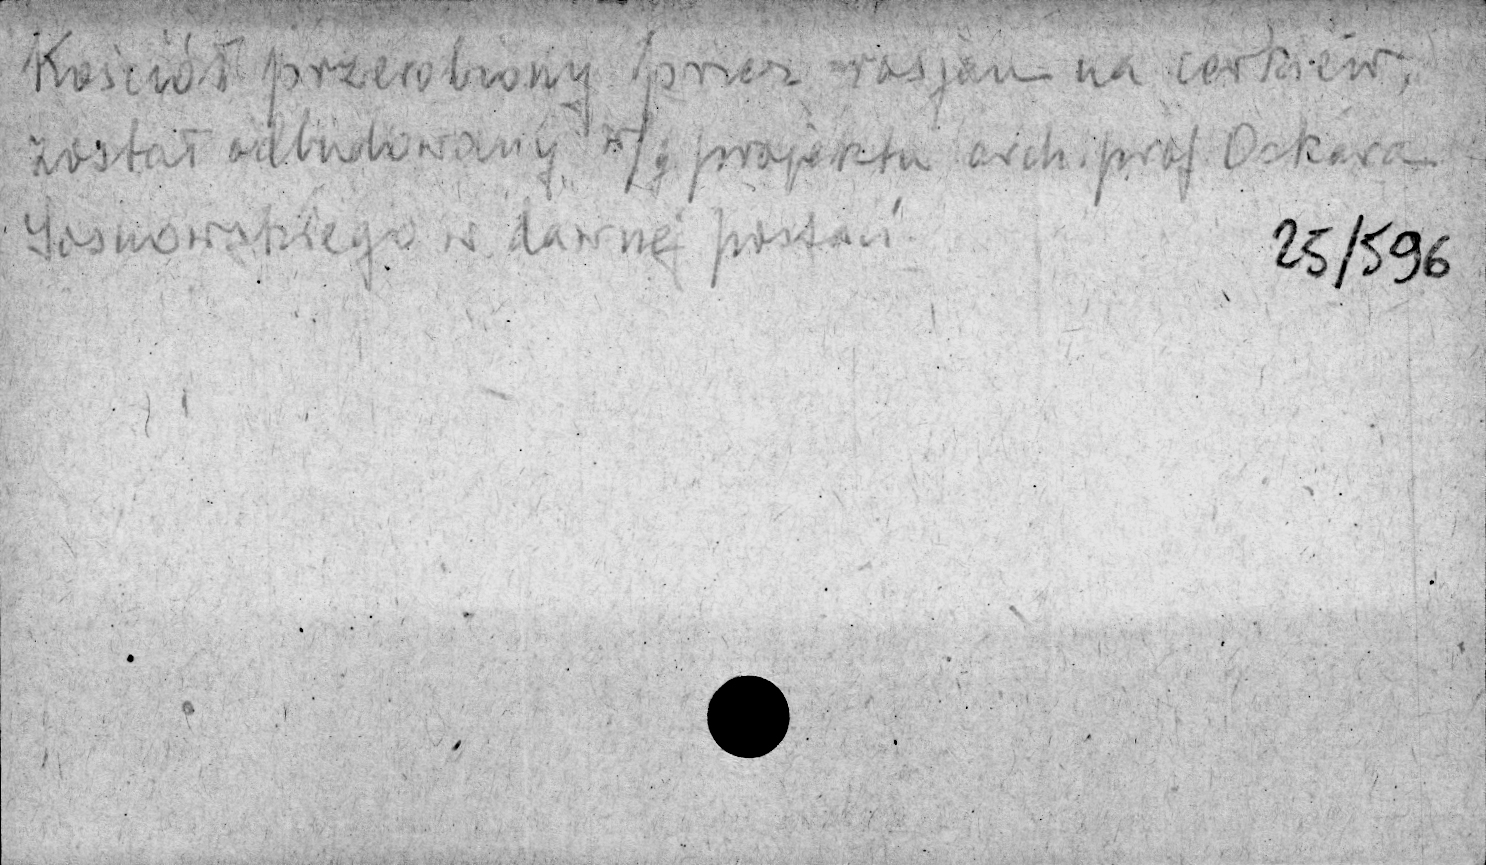 Kościół przerobiony przez rosjan na cerkiew,
został odbudowany w/g projektu arch. prof Oskara
Sosnowskiego w dawnej postaci
25/596